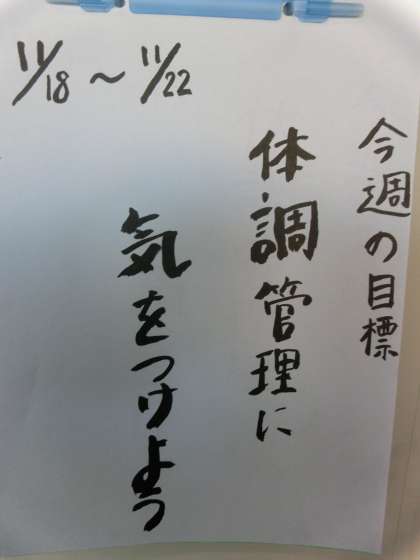 今週の目標
体調管理に
気をつけよう
11/18～11/22